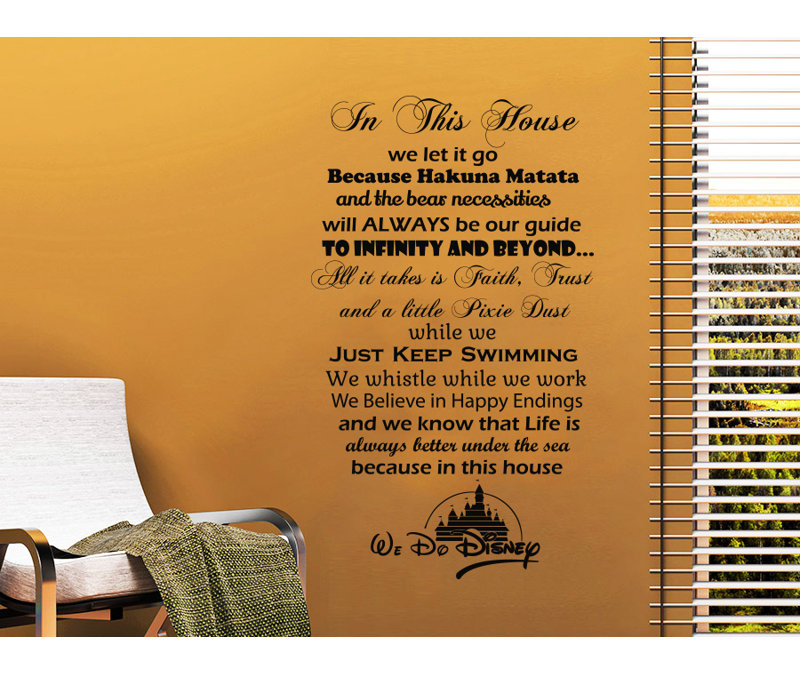 In This House
we let it go
Because Hakuna Matata
and the bear necessities
will ALWAYS be our guide
TO INFINITY AND BEYOND...
All it takes is Faith, Trust
and a little Pixie Dust
while we
JUST KEEP SWIMMING
We whistle while we work
We Believe in Happy Endings
and we know that Life is
always better under the sea
because in this house
We Do Disney